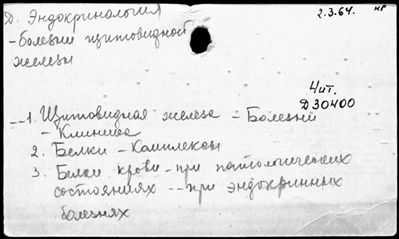 Д. Эндокринология
2.3.64. нг
- болезни щитовидной
железы
Чит.
Д30400
1. Щитовидная железа - Болезни
- Клиника
2. Белки - Комплексы
3. Белки крови - при патологических
состояниях -- при эндокринных
болезнях